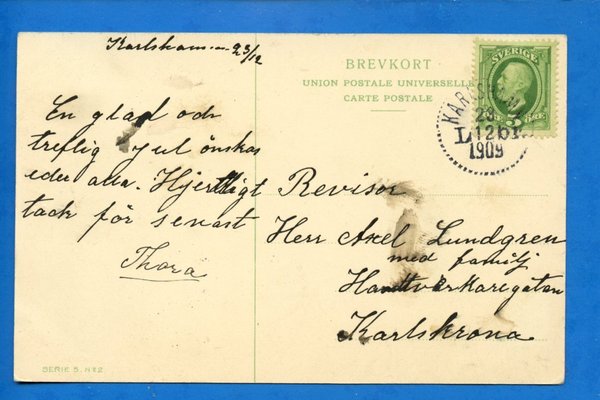 Karlshamn 23/12
BREVKORT
UNION POSTALE UNIVERSELLE
CARTE POSTALE
SVERIGE
5 ÖRE
KARLSHAMN
23
LBr. 12
1909
En glad och
treflig jul önskas
eder alla. Hjertligt
tack för senast
Thora
Revisor
Herr Axel Lundgren
med familj
Handtverkaregatan
Karlskrona
SERIE 5. N:o 2